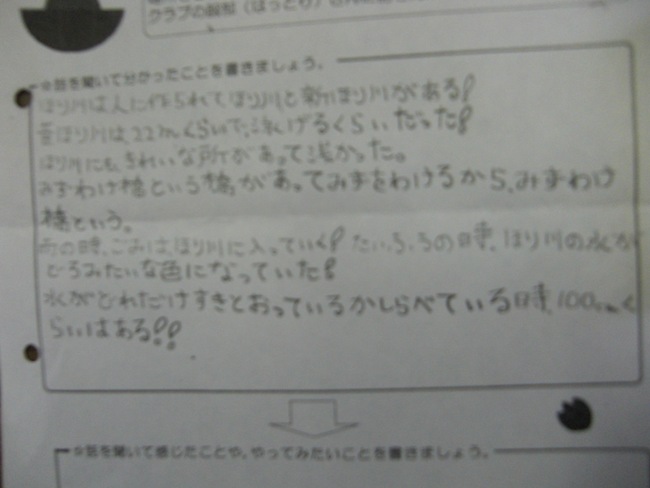 クラブの服部（はっとり）さん
☆話を聞いて分かったことを書きましょう。
ほり川は人に作られてほり川と新ほり川がある!
昔ほり川は、22mくらいで、泳げるくらいだった!
ほり川にも、きれいな所があって浅かった。
みずわけ橋という橋があってみずをわけるから、みずわけ
橋という。
雨の時、ごみは、ほり川に入っていく! たいふうの時、ほり川の水が
どろみたいな色になっていた!
水がどれだけすきとおっているかしらべている時、100cmく
らいはある!!
☆話を聞いて感じたことや、やってみたいことを書きましょう。